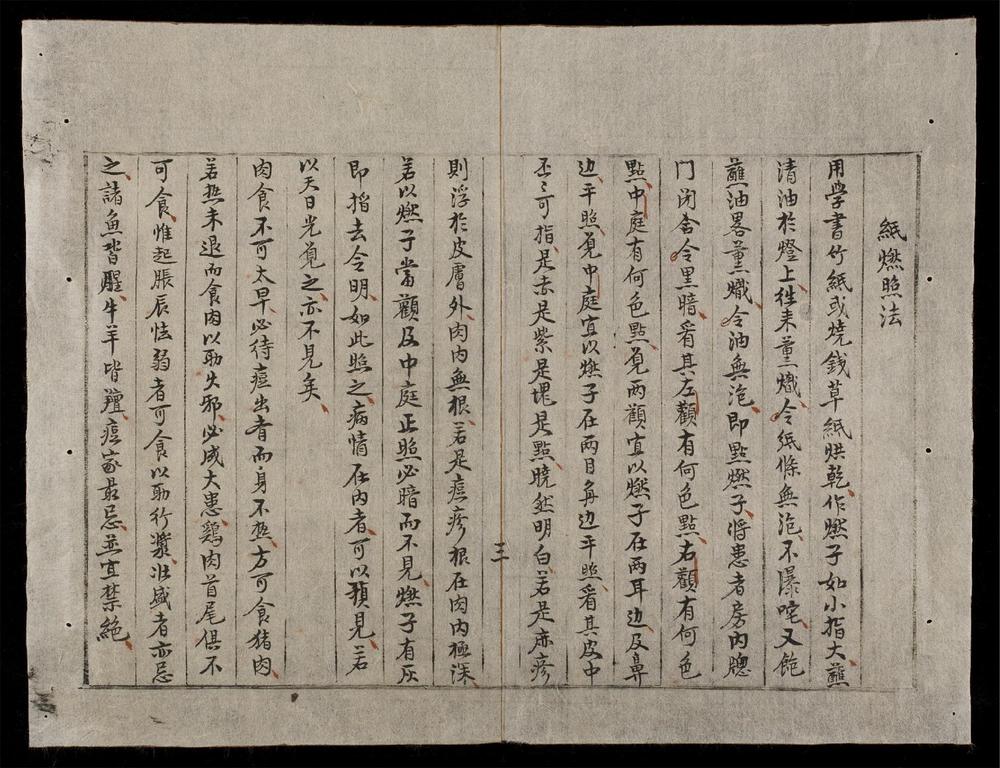 紙燃照法
用學書竹紙或燒錢草紙烘乾作燃子如小指大蘸
清油於燈上往来薰熾令紙條無泡不瀑咤又飽
蘸油畧薰熾令油無泡即㸃燃子將患者房內牕
门闭舍令黑暗看其左顴有何色㸃右顴有何色
㸃中庭有何色㸃覓兩顴宜以燃子在兩耳边及鼻
边平照覓中庭宜以燃子在兩目角边平照看其皮中
丕〻可指是赤是紫是塊是㸃曉然明白若是麻疹
三
則浮於皮膚外肉內無根若是痘疹根在肉內極深
若以燃子當顴及中庭正照必暗而不見燃子有灰
即搯去令明如此照之病情在內者可以預見若
以天日光覓之亦不見矣
肉食不可太早必待痘出者而身不热方可食猪肉
若热未退而食肉以助火邪必成大患鷄肉首尾俱不
可食惟起脹辰怯弱者可食以助行漿壮盛者亦忌
之諸魚皆腥牛羊皆羶痘家最忌並宜禁絶